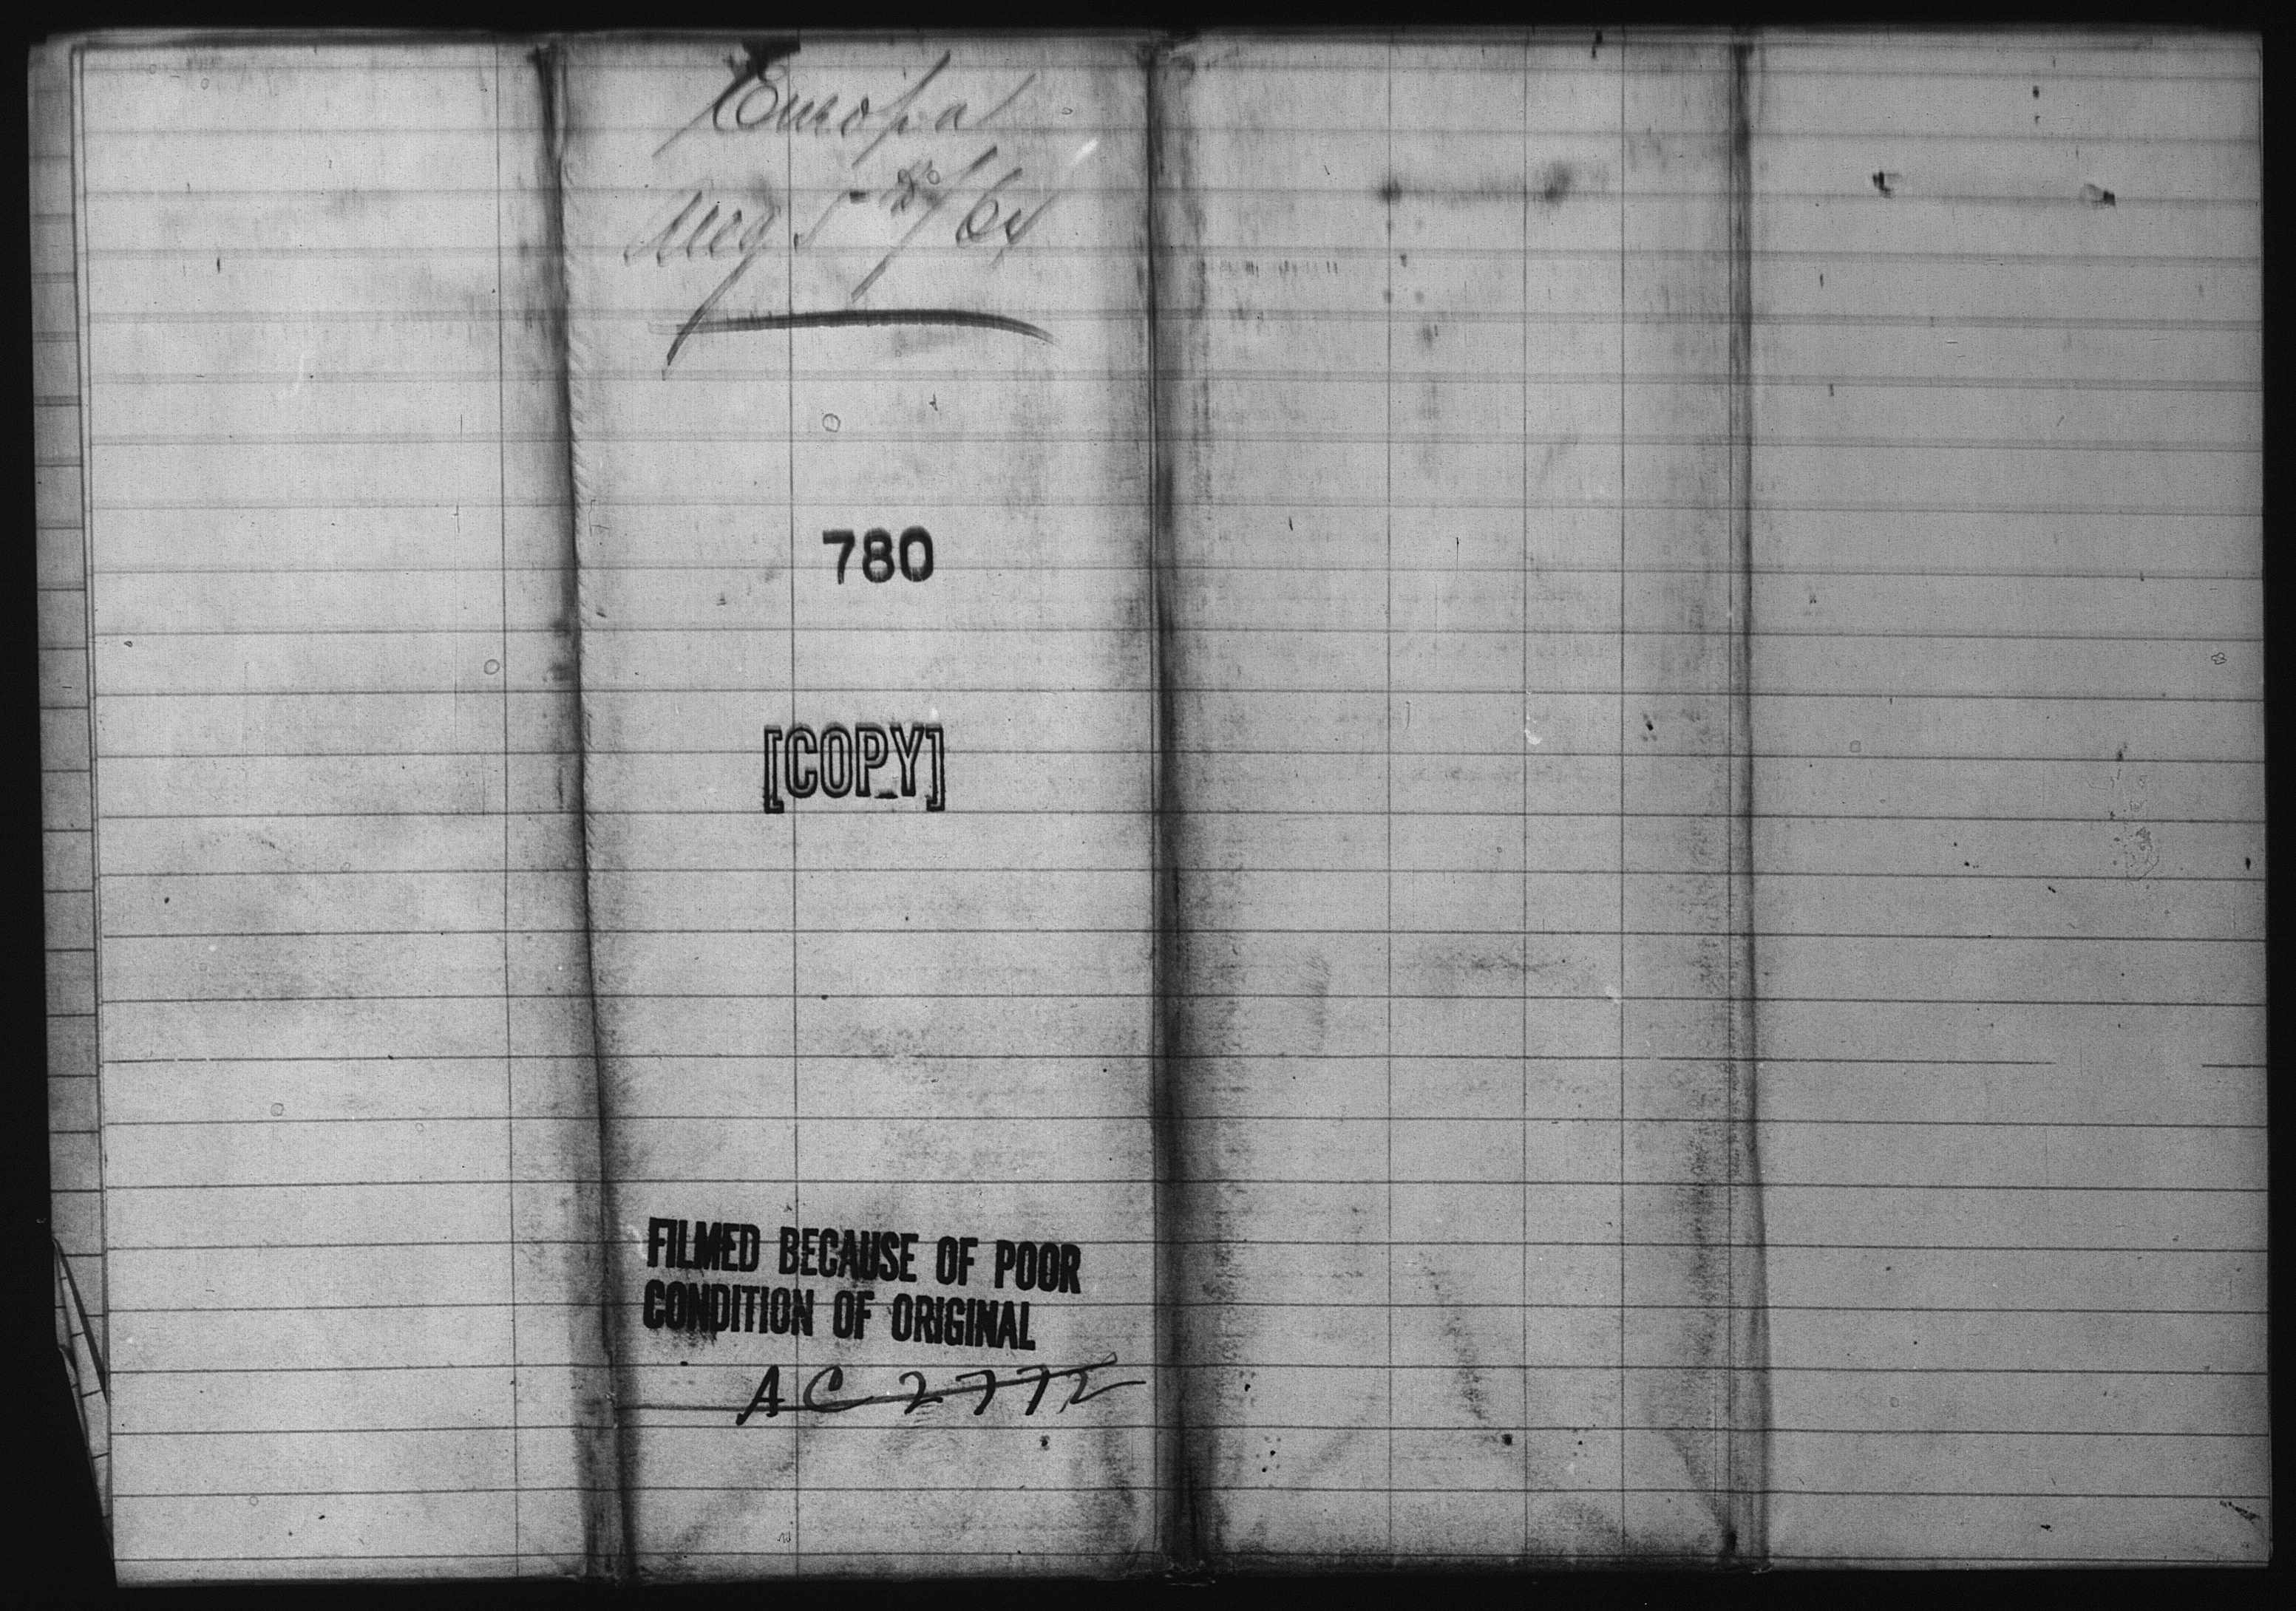 Europa
Aug 5 /64
780
[COPY]
FILMED BECAUSE OF POOR
CONDITION OF ORIGINAL
AC 2772